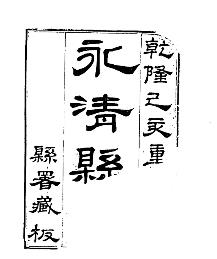 乾隆己亥重
永清縣
縣署藏板